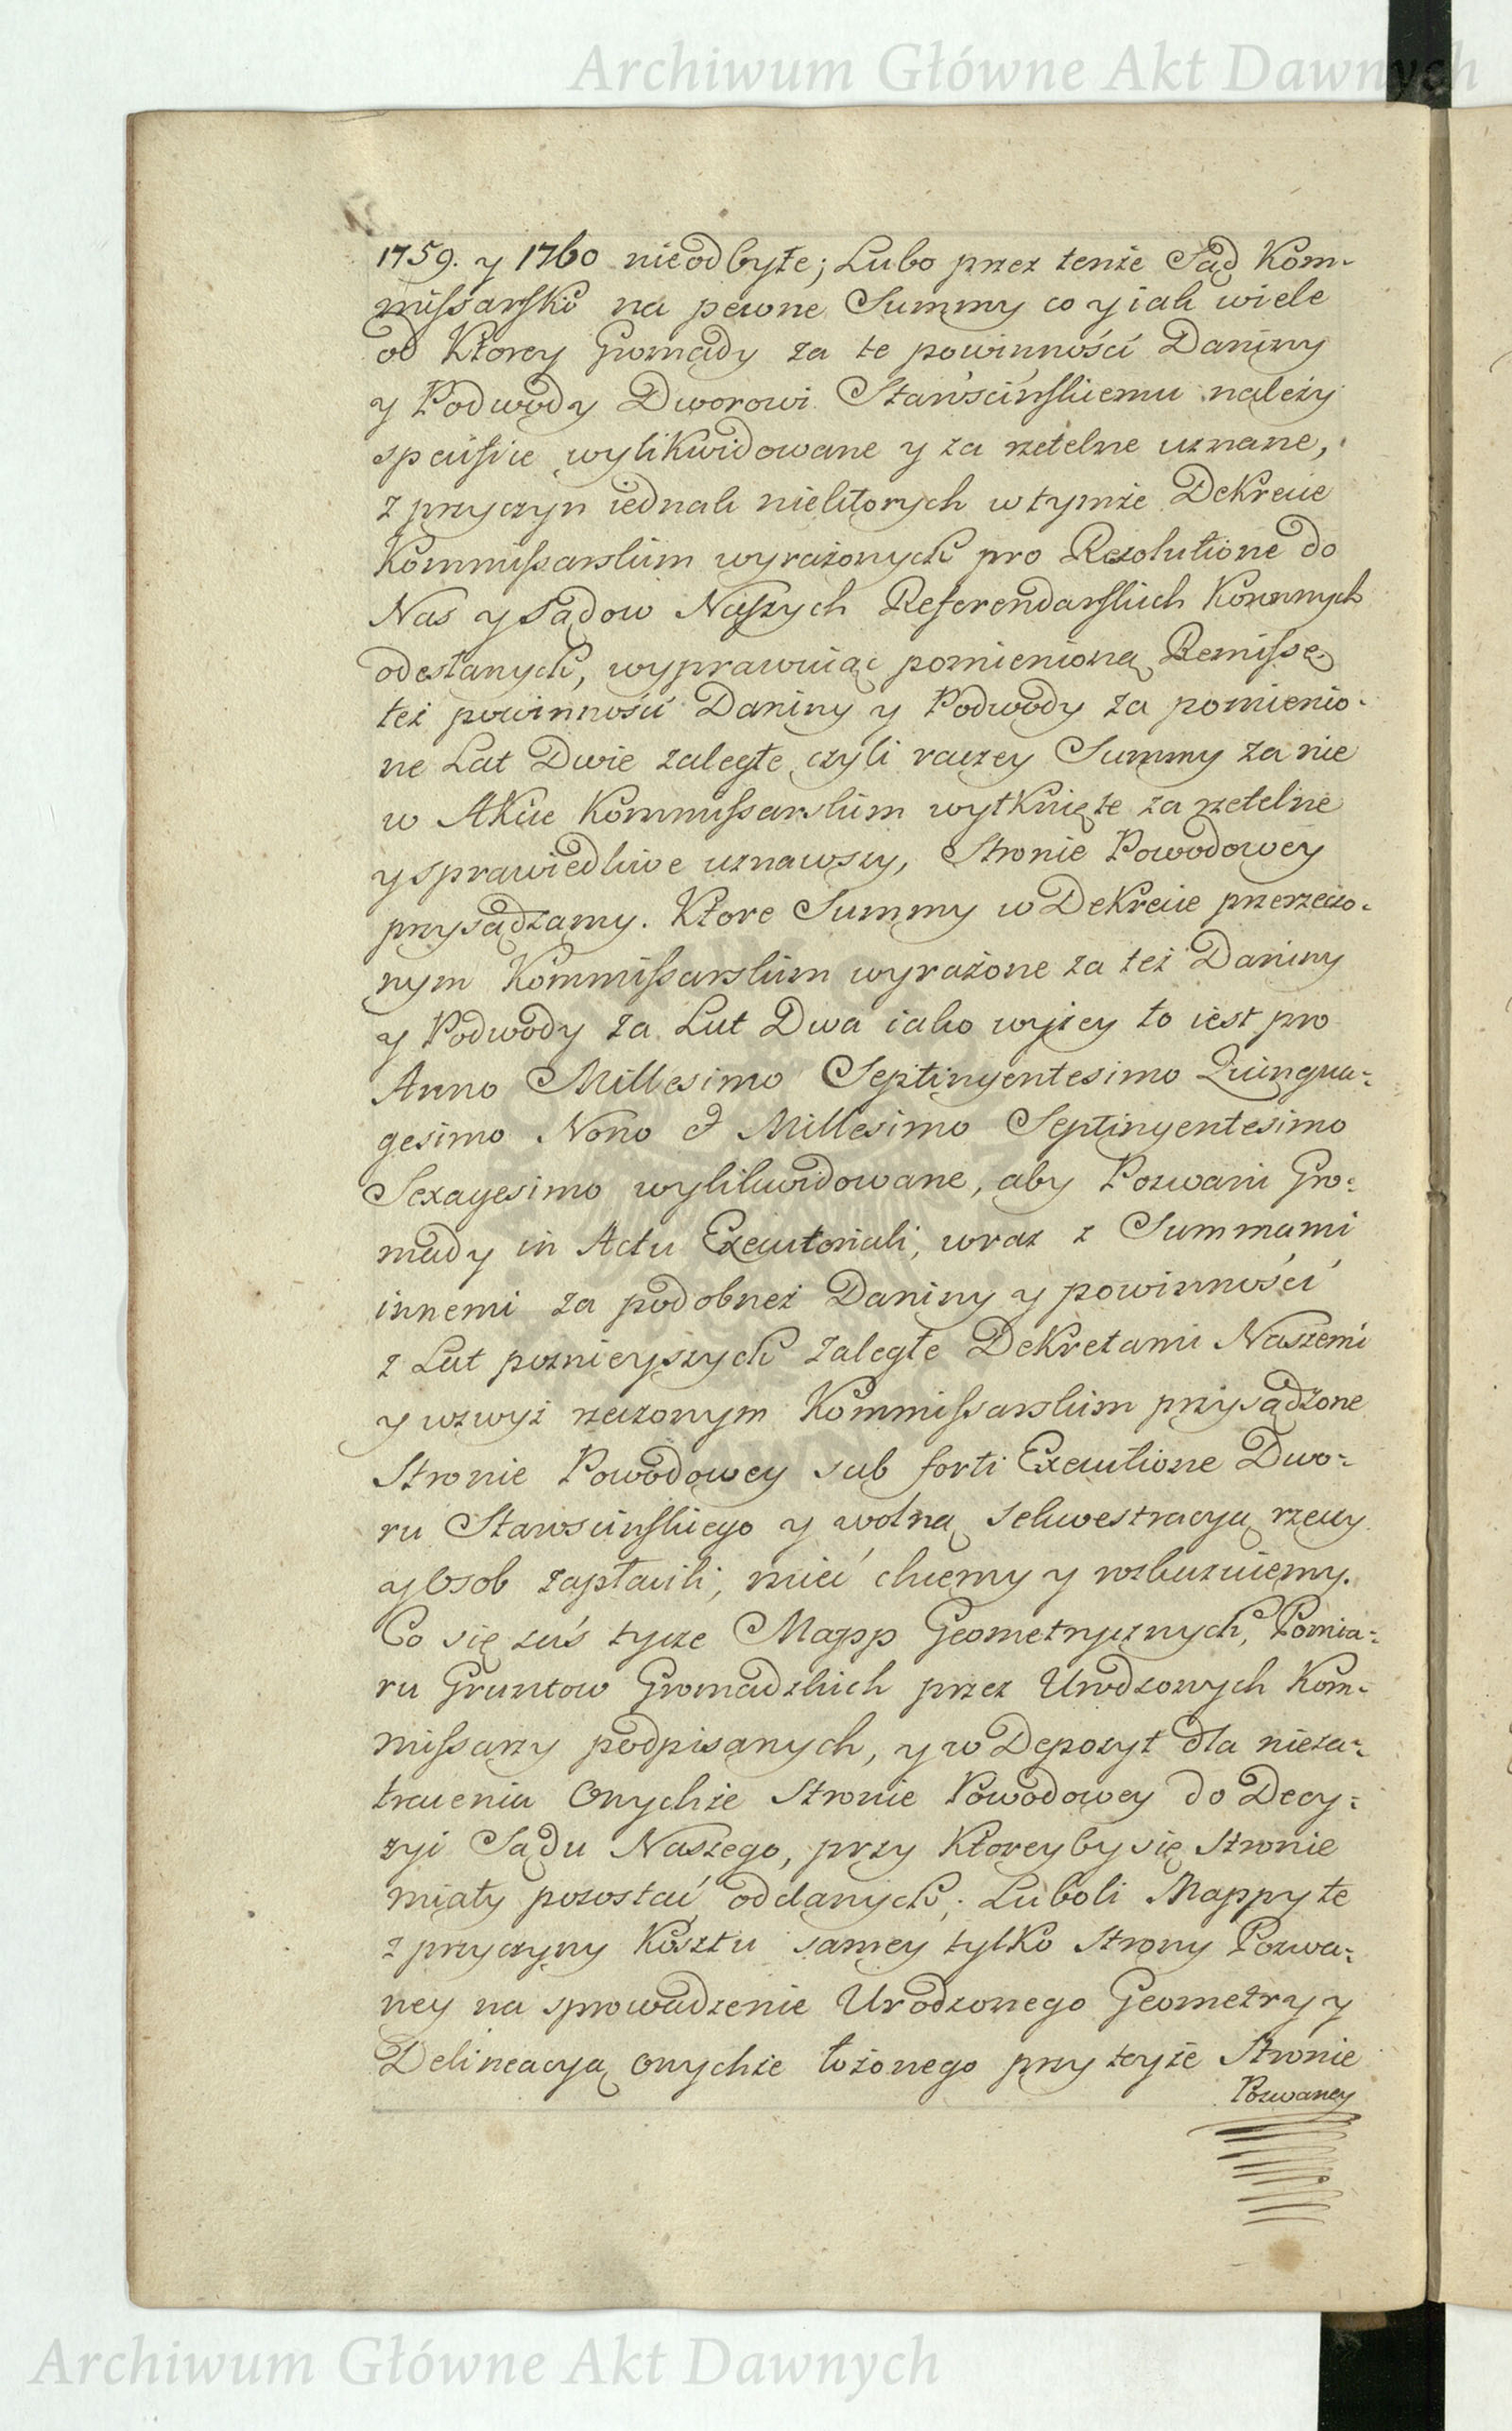 Archiwum Główne Akt Dawnych
1759. y 1760 nieodbyte; Lubo przez tenże Sąd Kom-
missarski na pewne Summy co y iak wiele
od Ktorey Gromady za te powinności Daniny
y Podwody Dworowi Starościńskiemu należy
specifice wylikwidowane y za rzetelne uznane,
z przyczyn iednak niektorych w tymże Dekrecie
Kommissarskim wyrażonych pro Resolutione do
Nas y Sądow Naszych Referendarskich Koronnych
odesłanych, wyprawuiąc pomienioną Remissę
też powinności Daniny y Podwody za pomienio-
ne Lat Dwie zaległe czyli raczey Summy za nie
w Akcie Kommissarskim wytknięte za rzetelne
y sprawiedliwe uznawszy, Stronie Powodowey
przysądzamy. Ktore Summy w Dekrecie przerzeczo-
nym Kommissarskim wyrażone za też Daniny
y Podwody za Lat Dwa iako wyżey to iest pro
Anno Millesimo Septingentesimo Quinqua-
gesimo Nono & Millesimo Septingentesimo
Sexagesimo wylikwidowane, aby Pozwani Gro-
mady in Actu Executoriali, wraz z Summami
innemi za podobneż Daniny y powinności
z Lat poznieyszych zaległe Dekretami Naszemi
y wzwyż rzeczonym Kommissarskim przysądzone
Stronie Powodowey sub forti Executione Dwo-
ru Starościńskiego y wolną sekwestracyą rzeczy
y Osob zapłacili, mieć chcemy y rozkazuiemy.
Co się zaś tycze Mapp Geometrycznych, Pomia-
ru Gruntow Gromadzkich przez Urodzonych Kom-
missarzy podpisanych, y w Depozyt dla nieza-
tracenia Onychże Stronie Powodowey do Decy-
zyi Sądu Naszego, przy Ktoreyby się Stronie
miały pozostać oddanych; Luboli Mappy te
z przyczyny Kosztu samey tylko Strony Pozwa-
ney na sprowadzenie Urodzonego Geometry y
Delineacyą onychże łożonego przy teyże Stronie
Pozwaney
Archiwum Główne Akt Dawnych